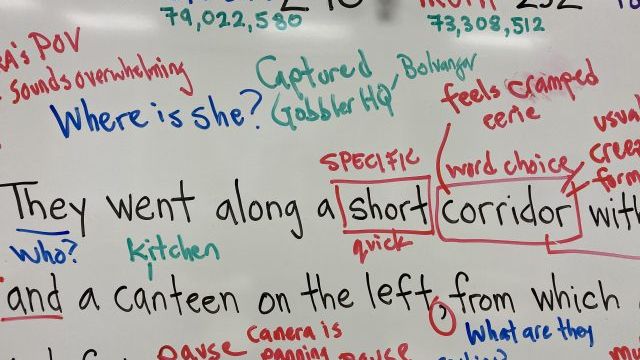 79,022,580
73,308,512
POV
sounds overwhelming
Where is she?
Captured
Gobbler HQ
Bolvangar
feels cramped
eerie
SPECIFIC
word choice
They went along a short corridor with
Who?
kitchen
quick
and a canteen on the left, from which
pause
Camera is
panning
pause
What are they